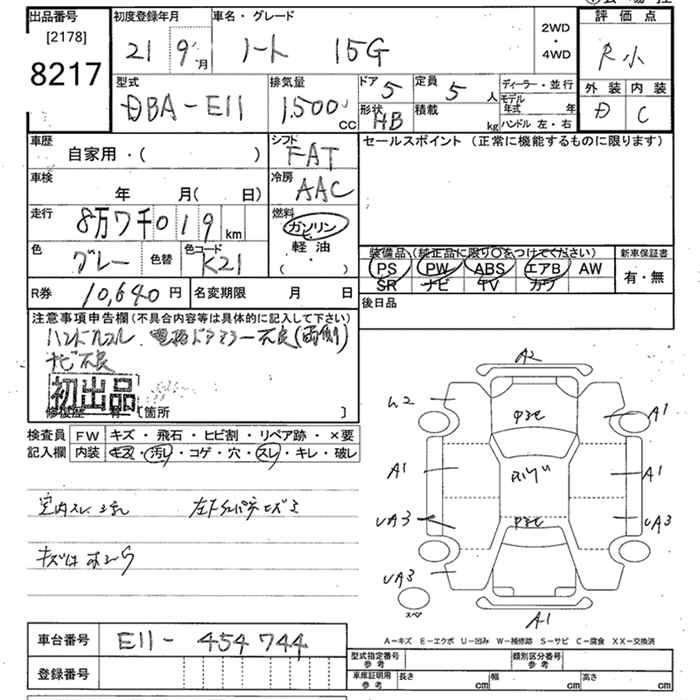 出品番号 初度登録年月 車名・グレード 評価点
[2178] 21 9月 ノート 15G 2WD・4WD R小
8217
型式 排気量 ドア 5 定員 5人 ディーラー・並行 外装 内装
DBA-E11 1,500cc 形状 HB 積載 kg モデル年式 年 D C
ハンドル 左・右
車歴 シフト セールスポイント(正常に機能するものに限ります)
自家用・( ) FAT
車検 冷房
年 月( 日) AAC
走行 燃料
8万7千019km ガソリン
色 色替 色コード 軽油
グレー K21 ( ・ )
装備品(純正品に限り○をつけてください) 新車保証書
PS PW ABS エアB AW 有・無
SR ナビ TV カワ
R券 10,640円 名変期限 月 日 後日品
注意事項申告欄(不具合内容等は具体的に記入して下さい)
ハンドル 電格ドアミラー不良(両側)
ナビ不良
初出品
修復歴 有 [箇所 ]
検査員 FW キズ・飛石・ヒビ割・リペア跡・×要
記入欄 内装 キズ・汚れ・コゲ・穴・スレ・キレ・破レ
A2
A1
A1
A1
UA3
UA3
UA3
A1
スペア
室内スレ
A-キズ E-エクボ U-凹み W-補修跡 S-サビ C-腐食 XX-交換済
車台番号 E11-454744
登録番号
型式指定番号 参考 類別区分番号 参考
車庫証明用 参考 長さ cm 幅 cm 高さ cm